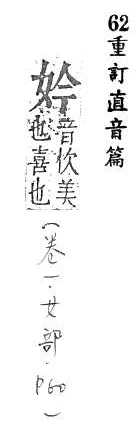 62重訂直音篇
妗音忺美
也喜也
（卷一・女部・P60）